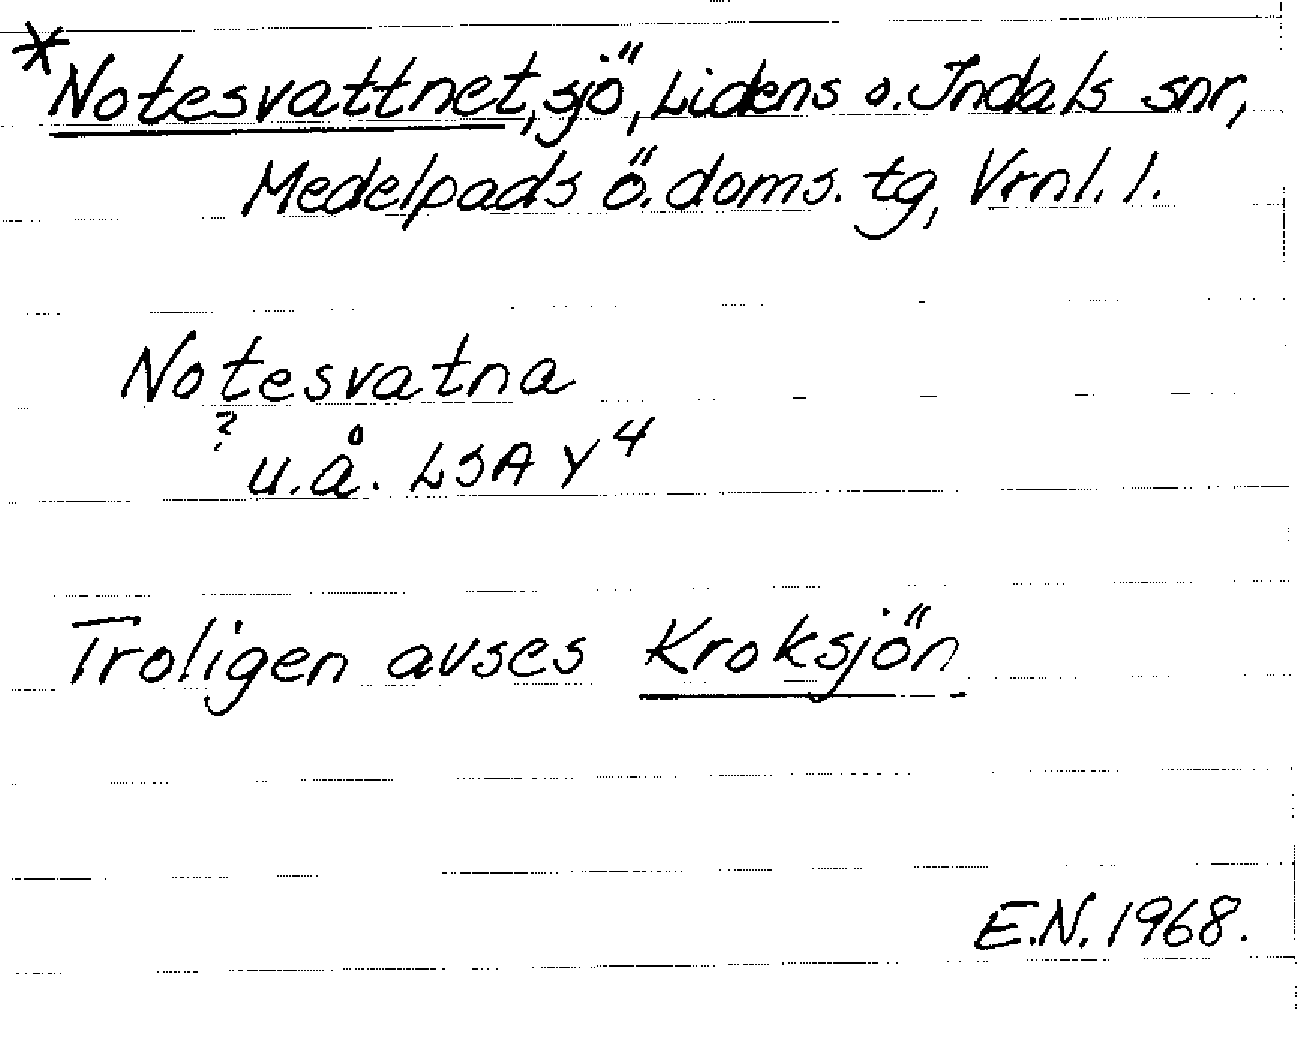 *Notesvattnet, sjö, Lidens o. Indals snr,
Medelpads ö. doms. tg, Vrnl. l.
Notesvatna
?
u.å. LSA Y4
Troligen avses Kroksjön
E.N. 1968.